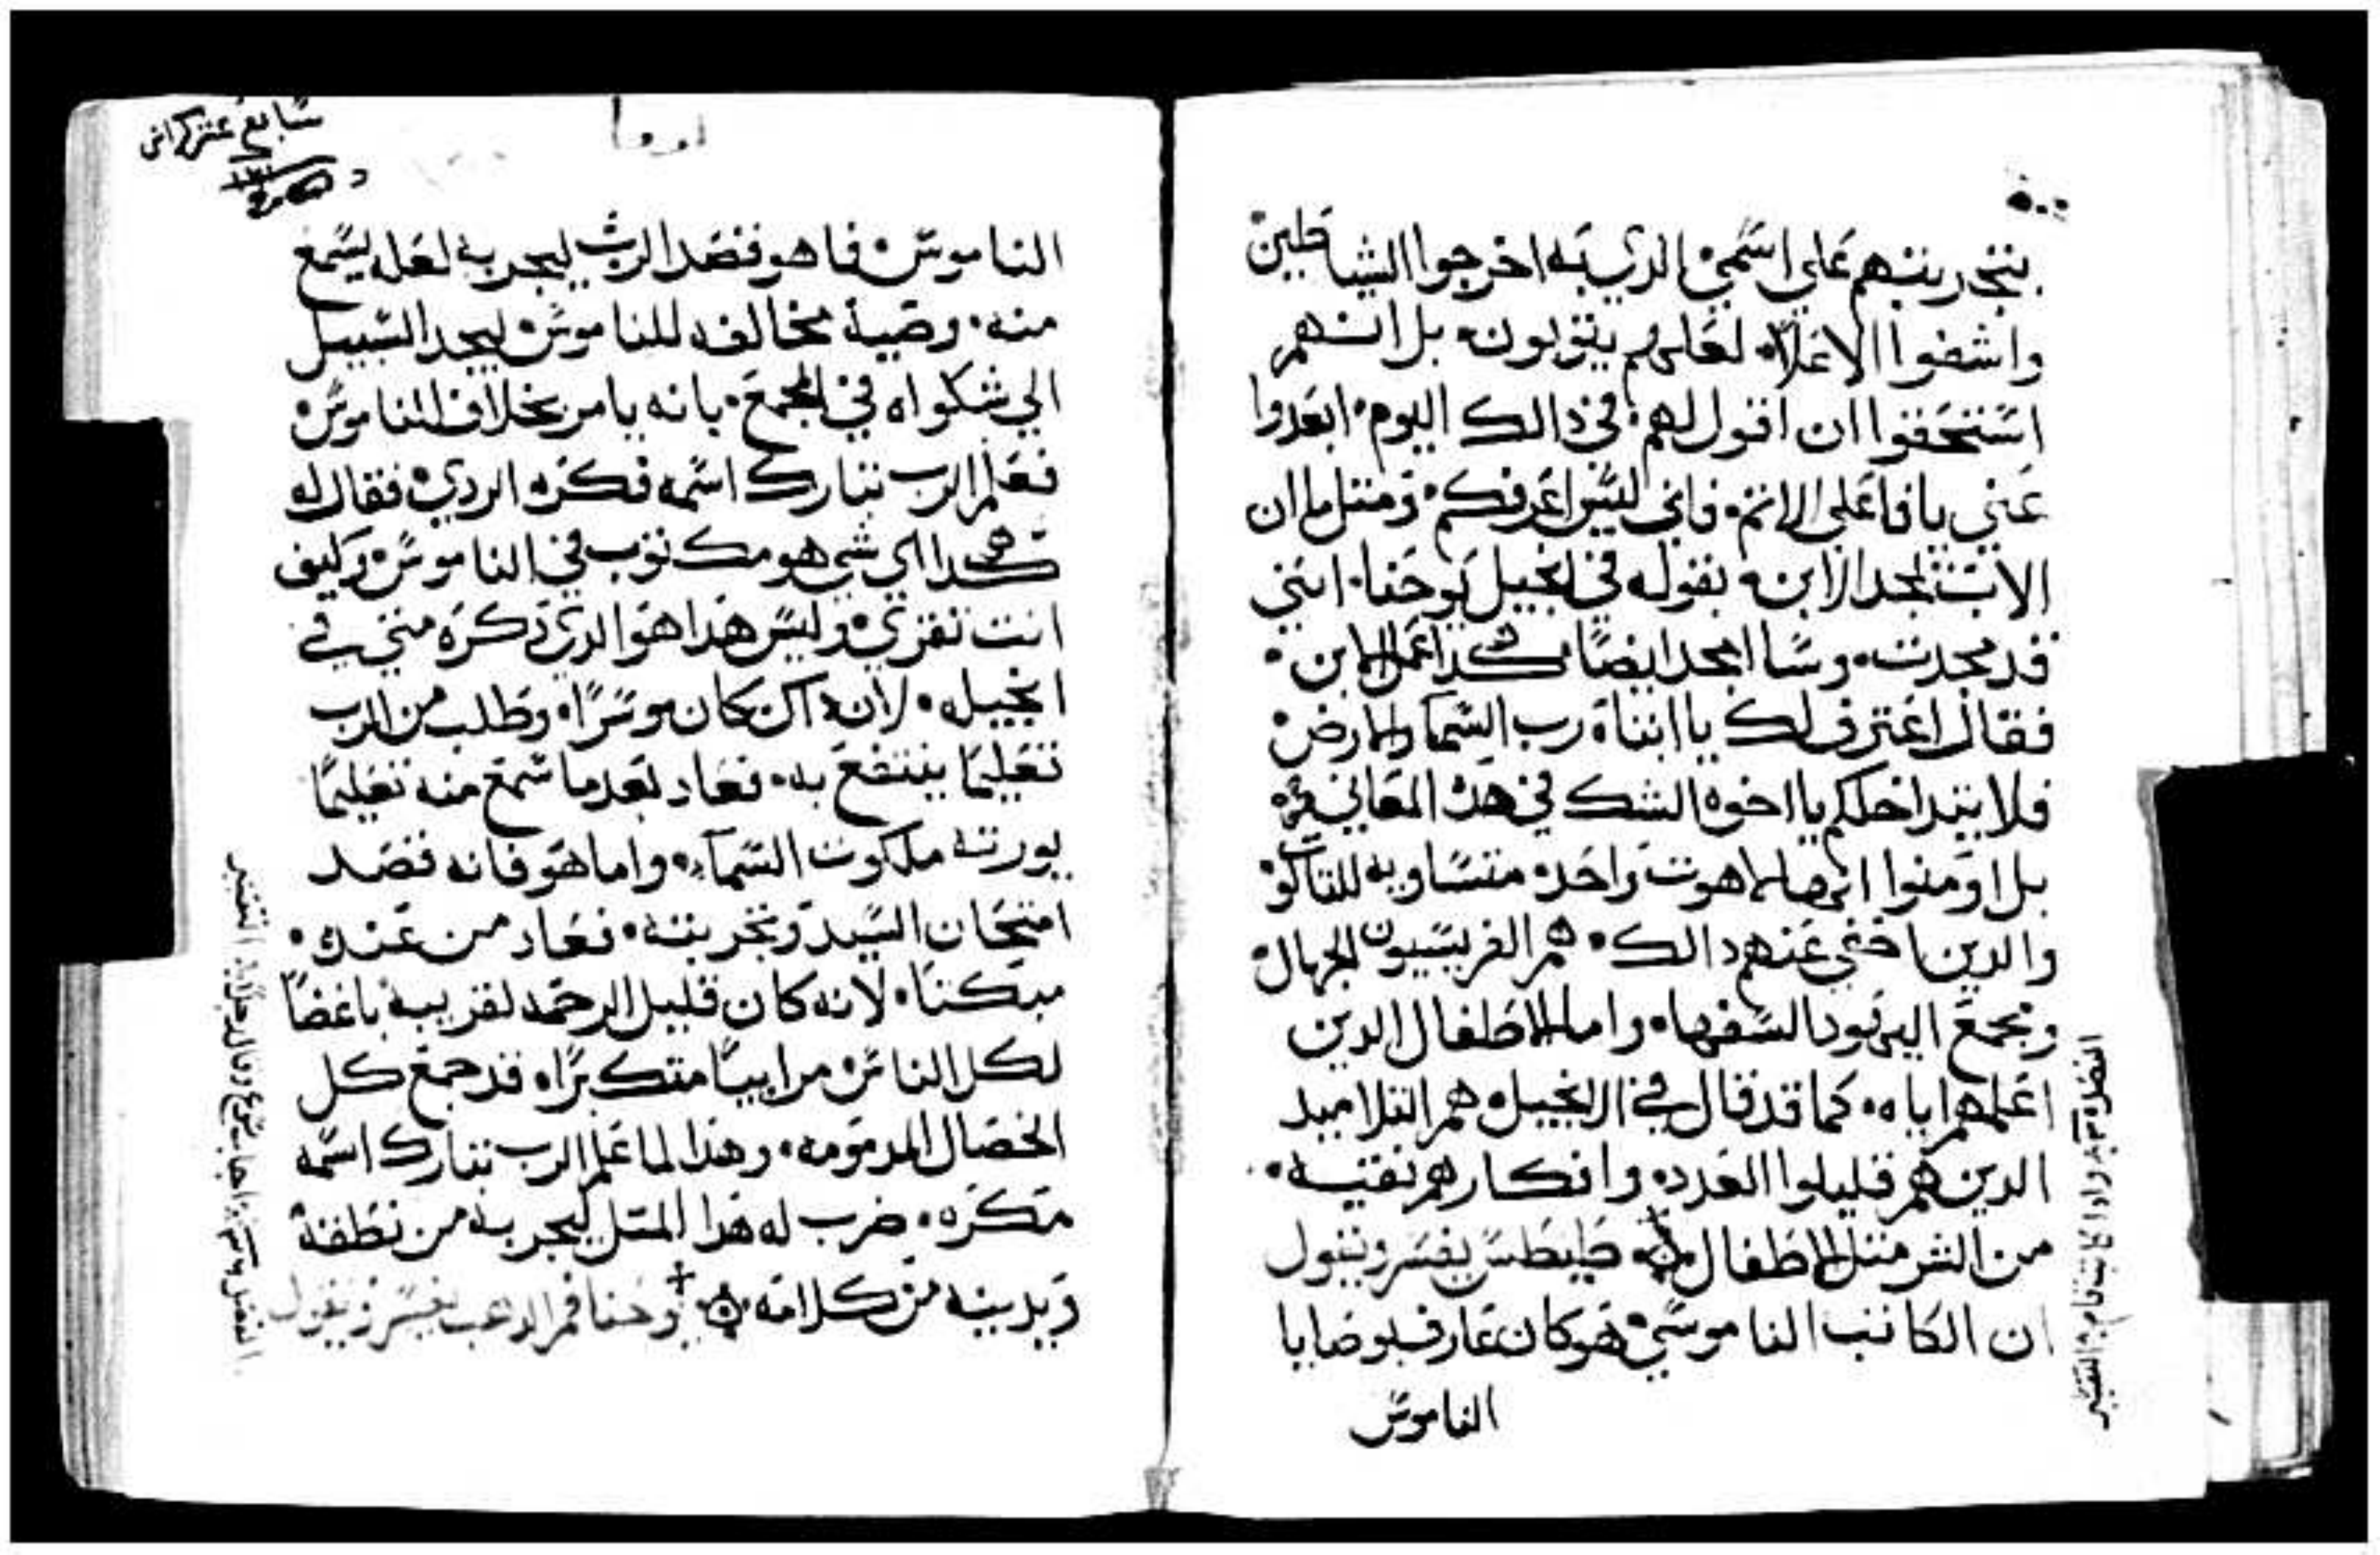 بتجربتهم علي اسمي الدي به اخرجوا الشياطين
واشفوا الاعلاء لعلهم يتوبون بل انهم
استحقوا ان اقول لهم في دالك اليوم ابعدوا
عني يا فاعلي الاتم فاني ليس اعرفكم ومتل ما ان
الاب تمجد الابن بقوله في انجيل يوحنا انني
قد مجدت وسا امجد ايضا هكدا عمل الابن
فقال اعترف لك يا ابتاه رب السما والارض
فلا يتداخلكم يا اخوه الشك في هده المعاني
بل اومنوا انها لاهوت واحده متساويه للتالوت
والدين اخفي عنهم دالك هم الفريسيون الجهال
ومجمع اليهود السفها واما الاطفال الدين
اعلمهم اياه كما قد قال في الانجيل هم التلاميد
الدين هم قليلوا العدد وافكارهم نقيه
من الشر متل الاطفال طيطس يفسر ويقول
ان الكاتب الناموسي هو كان عارف بوصايا
الناموس
سابع عشر كراس
الناموس فاهو فقصد الرب ليجربه لعله ليسمع
منه وصية مخالفه للناموس ليجد السبيل
الي شكواه في المجمع بانه يامر بخلاف الناموس
فعلم الرب تبارك اسمه فكره الردي فقال له
هكدا اي شي هو مكتوب في الناموس وكيف
انت تقري وليس هدا هو الدي دكره متي في
انجيله لان داك كان موسرا وطلب من الرب
تعليما ينتفع به فعاد بعد ما سمع منه تعليما
يورته ملكوت السماء واما هو فانه قصد
امتحان السيد وتجربته فعاد من عنده
مبكتا لانه كان قليل الرحمه لقريبه باغضا
لكل الناس مراييا متكبرا قد جمع كل
الخصال المدمومه وهدا لما علم الرب تبارك اسمه
مكره ضرب له هدا المتل ليجربه من نطقة
ويدينه من كلامه يوحنا فم الدهب يفسر ويقول